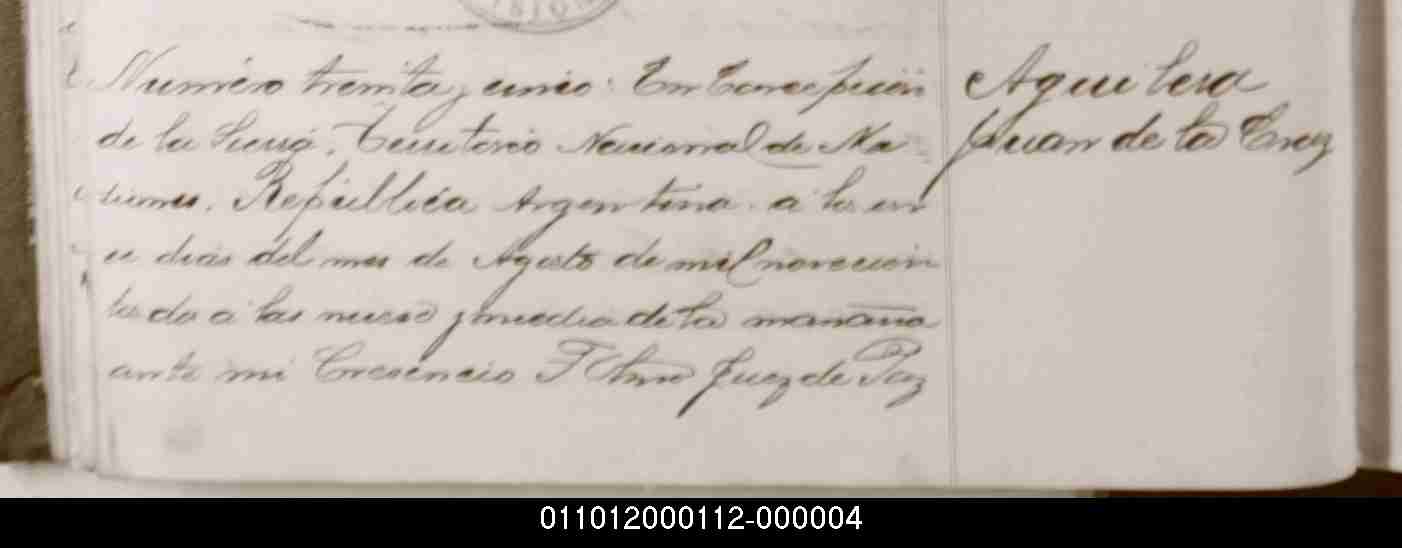 Numero treinta y uno: En Concepcion
de la Sierra, Territorio Nacional de Mi
siones, Republica Argentina a los on
ce dias del mes de Agosto de mil novecien
tos dos a las nueve y media de la mañana
ante mi Cresencio F Juez de Paz
Aguilera
Juan de la Cruz
011012000112-000004